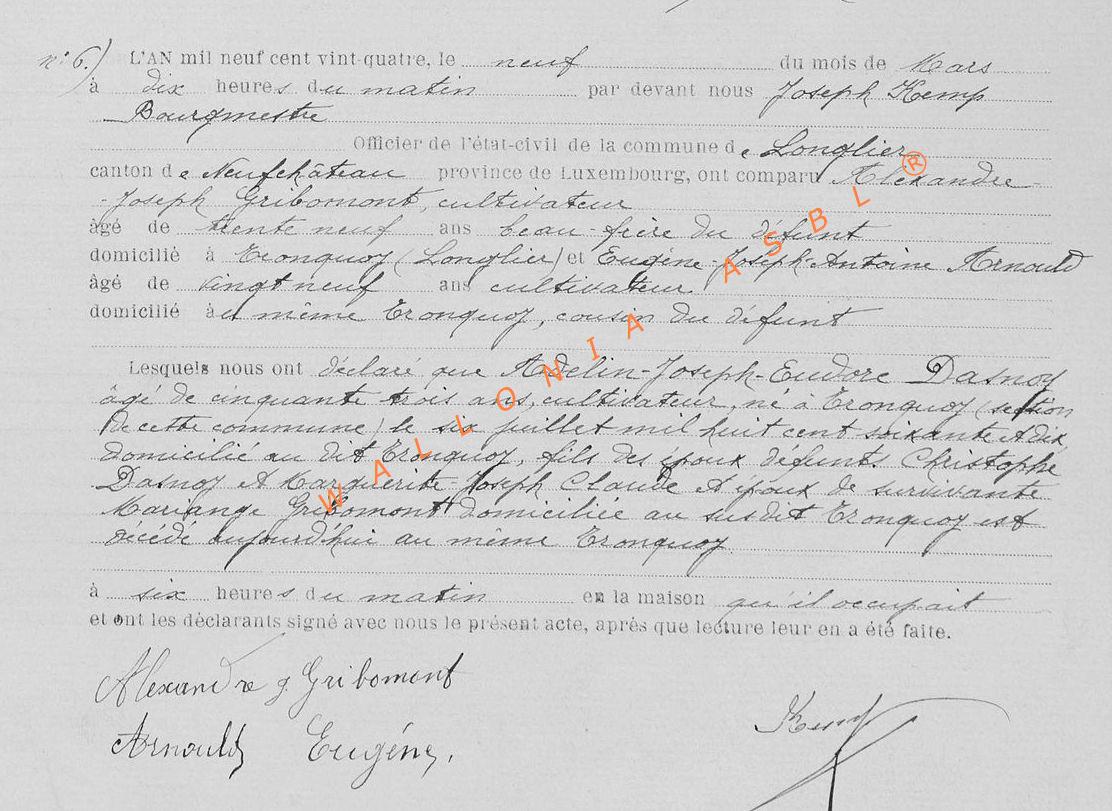 n° 6.) L'AN mil neuf cent vint-quatre, le neuf du mois de Mars
à dix heures du matin par devant nous Joseph Kemp
Bourgmestre
Officier de l'état-civil de la commune de Longlier
canton de Neufchâteau province de Luxembourg, ont comparu Alexandre
Joseph Gribomont, cultivateur
âgé de trente neuf ans beau-frère du défunt
domicilié à Tronquoy (Longlier) et Eugène-Joseph-Antoine Arnould
âgé de vingt neuf ans cultivateur
domicilié au même Tronquoy, cousin du défunt
Lesquels nous ont déclaré que Adelin-Joseph-Eudore Dasnoy
âgé de cinquante trois ans, cultivateur, né à Tronquoy (section
de cette commune) le six juillet mil huit cent soixante et dix,
domicilié au dit Tronquoy, fils des époux défunts Christophe
Dasnoy et Marguerite-Joseph Claude et époux de survivante
Mariange Gribomont domiciliée au susdit Tronquoy est
décédé aujourd'hui au même Tronquoy
à six heures du matin en la maison qu'il occupait
et ont les déclarants signé avec nous le présent acte, après que lecture leur en a été faite.
Alexandre j. Gribomont
Kemp
Arnould Eugène.
WALLONIA ASBL ®